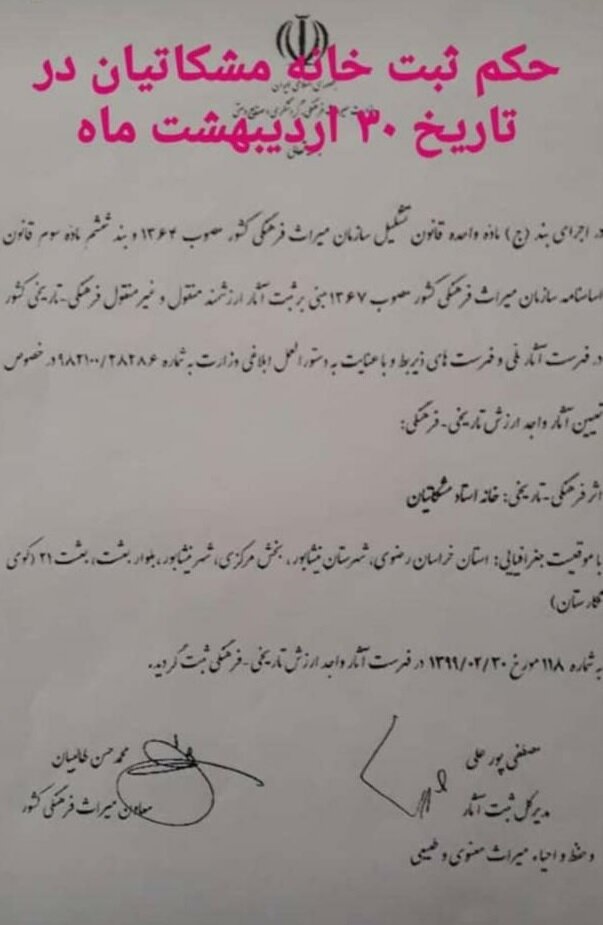 حکم ثبت خانه مشکاتیان در
تاریخ ۳۰ اردیبهشت ماه
در اجرای بند (ج) ماده واحده قانون تشکیل سازمان میراث فرهنگی کشور مصوب ۱۳۶۴ و بند ششم ماده سوم قانون
اساسنامه سازمان میراث فرهنگی کشور مصوب ۱۳۶۷ مبنی بر ثبت آثار ارزشمند منقول و غیرمنقول فرهنگی-تاریخی کشور
در فهرست آثار ملی و فهرست های ذیربط و با عنایت به دستورالعمل ابلاغی وزارت به شماره ۹۸۲۱۰۰/۲۸۲۸۶ در خصوص
تعیین آثار واجد ارزش تاریخی-فرهنگی:
اثر فرهنگی-تاریخی: خانه استاد مشکاتیان
با موقعیت جغرافیایی: استان خراسان رضوی، شهرستان نیشابور، بخش مرکزی، شهر نیشابور، بلوار بعثت، بعثت ۲۱ (کوی
نگارستان)
به شماره ۱۱۸ مورخ ۱۳۹۹/۰۲/۳۰ در فهرست آثار واجد ارزش تاریخی-فرهنگی ثبت گردید.
مصطفی پور علی
مدیرکل ثبت آثار
و حفظ و احیاء میراث معنوی و طبیعی
محمد حسن طالبیان
معاون میراث فرهنگی کشور